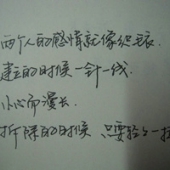 两个人的感情就像织毛衣.
建立的时候一针一线.
小心而漫长.
拆除的时候 只要轻轻一拉